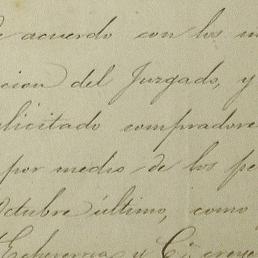 de acuerdo con los
cion del Juzgado, y
licitado compradore
por medio de los pe
Octubre último, como
Echeverria y Ca creye